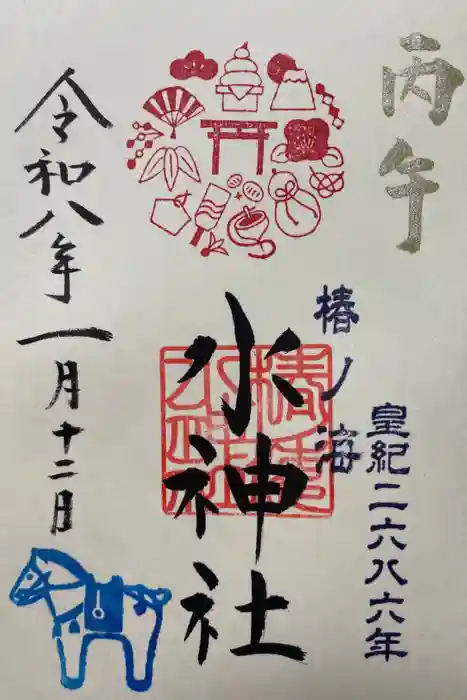 丙午
椿ノ海
皇紀二六八六年
水神社
令和八年一月十二日